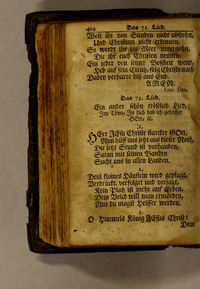 404 Das 75. Lied.
Wolt ihr von Sünden nicht abstehn,
Und Christum nicht erkennen,
So werdt ihr im Meer untergehn,
Die ihr euch Christen nennen.
Ein jeder von seiner Boßheit wend,
Heb auf sein Creutz, folg Christo nach
Dabey verharre bis ans End.
AMEN.
Das 75. Lied.
Ein ander schön tröstlich Lied,
Im Thon, In dich hab ich gehoffet
HErr, ꝛc.
HErr JEsu Christ starcker GOtt,
Nun hilff uns jetzt aus dieser Noth,
Die letzt Stund ist vorhanden,
Satan mit seinen Banden
Sucht uns in allen Landen.
2.
Dein kleines Häuflein wird geplagt,
Verdrückt, verfolget und verjagt,
Kein Platz ist mehr auf Erden,
Dein Volck will man ermörden,
Nur du magst Helffer werden.
O Himmels König JEsus Christ!
Dein